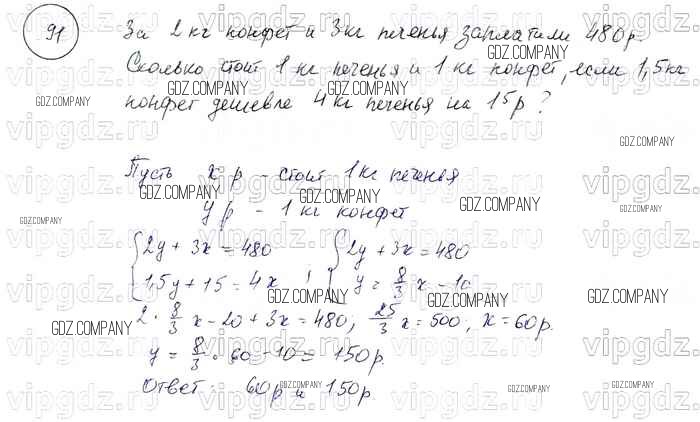 91
За 2 кг конфет и 3 кг печенья заплатили 480 р.
Сколько стоит 1 кг печенья и 1 кг конфет, если 1,5 кг
конфет дешевле 4 кг печенья на 15 р?
Пусть x р - стоит 1 кг печенья
y р - 1 кг конфет
{2y + 3x = 480
1,5y + 15 = 4x ; {2y + 3x = 480
y = 8/3 x - 10
2 · 8/3 x - 20 + 3x = 480; 25/3 x = 500, x = 60 р.
y = 8/3 · 60 - 10 = 150 р.
Ответ: 60 р и 150 р.
GDZ.COMPANY
vipgdz.ru